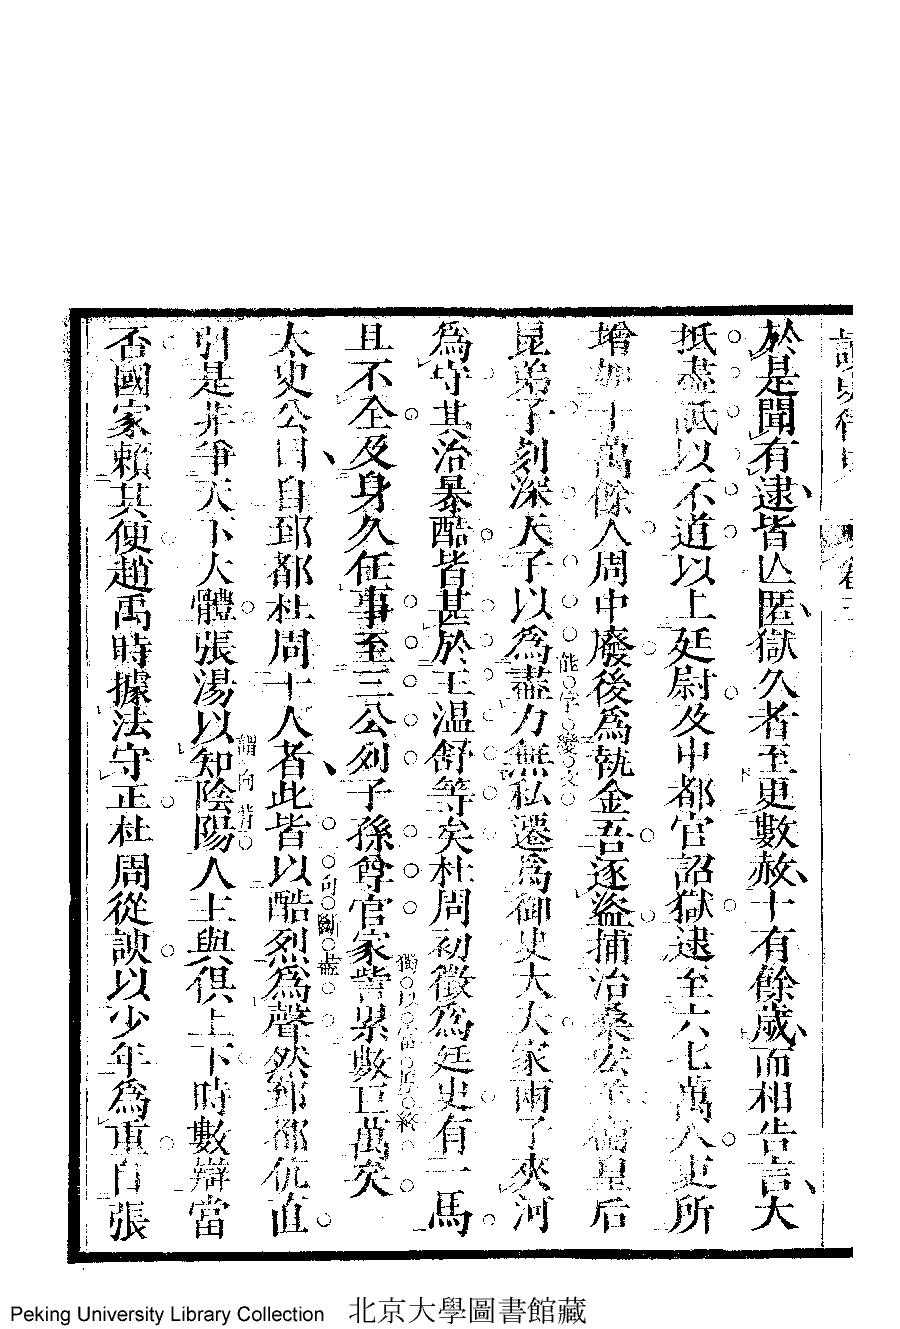 於是聞有逮皆亾匿獄久者至更數赦十有餘歲而相告言大
抵盡詆以不道以上廷尉及中都官詔獄逮至六七萬人吏所
增加十萬餘人周中廢後爲執金吾逐盜捕治桑宏羊衛皇后
昆弟子刻深天子以爲盡力無私遷爲御史大夫家兩子夾河
爲守其治暴酷皆甚於王溫舒等矣杜周初徵爲廷史有一馬
且不全及身久任事至三公列子孫尊官家訾累數巨萬矣
太史公曰自郅都杜周十人者此皆以酷烈爲聲然郅都伉直
引是非爭天下大體張湯以知陰陽人主與俱上下時數辯當
否國家賴其便趙禹時據法守正杜周從諛以少年爲重自張
Peking University Library Collection 北京大學圖書館藏